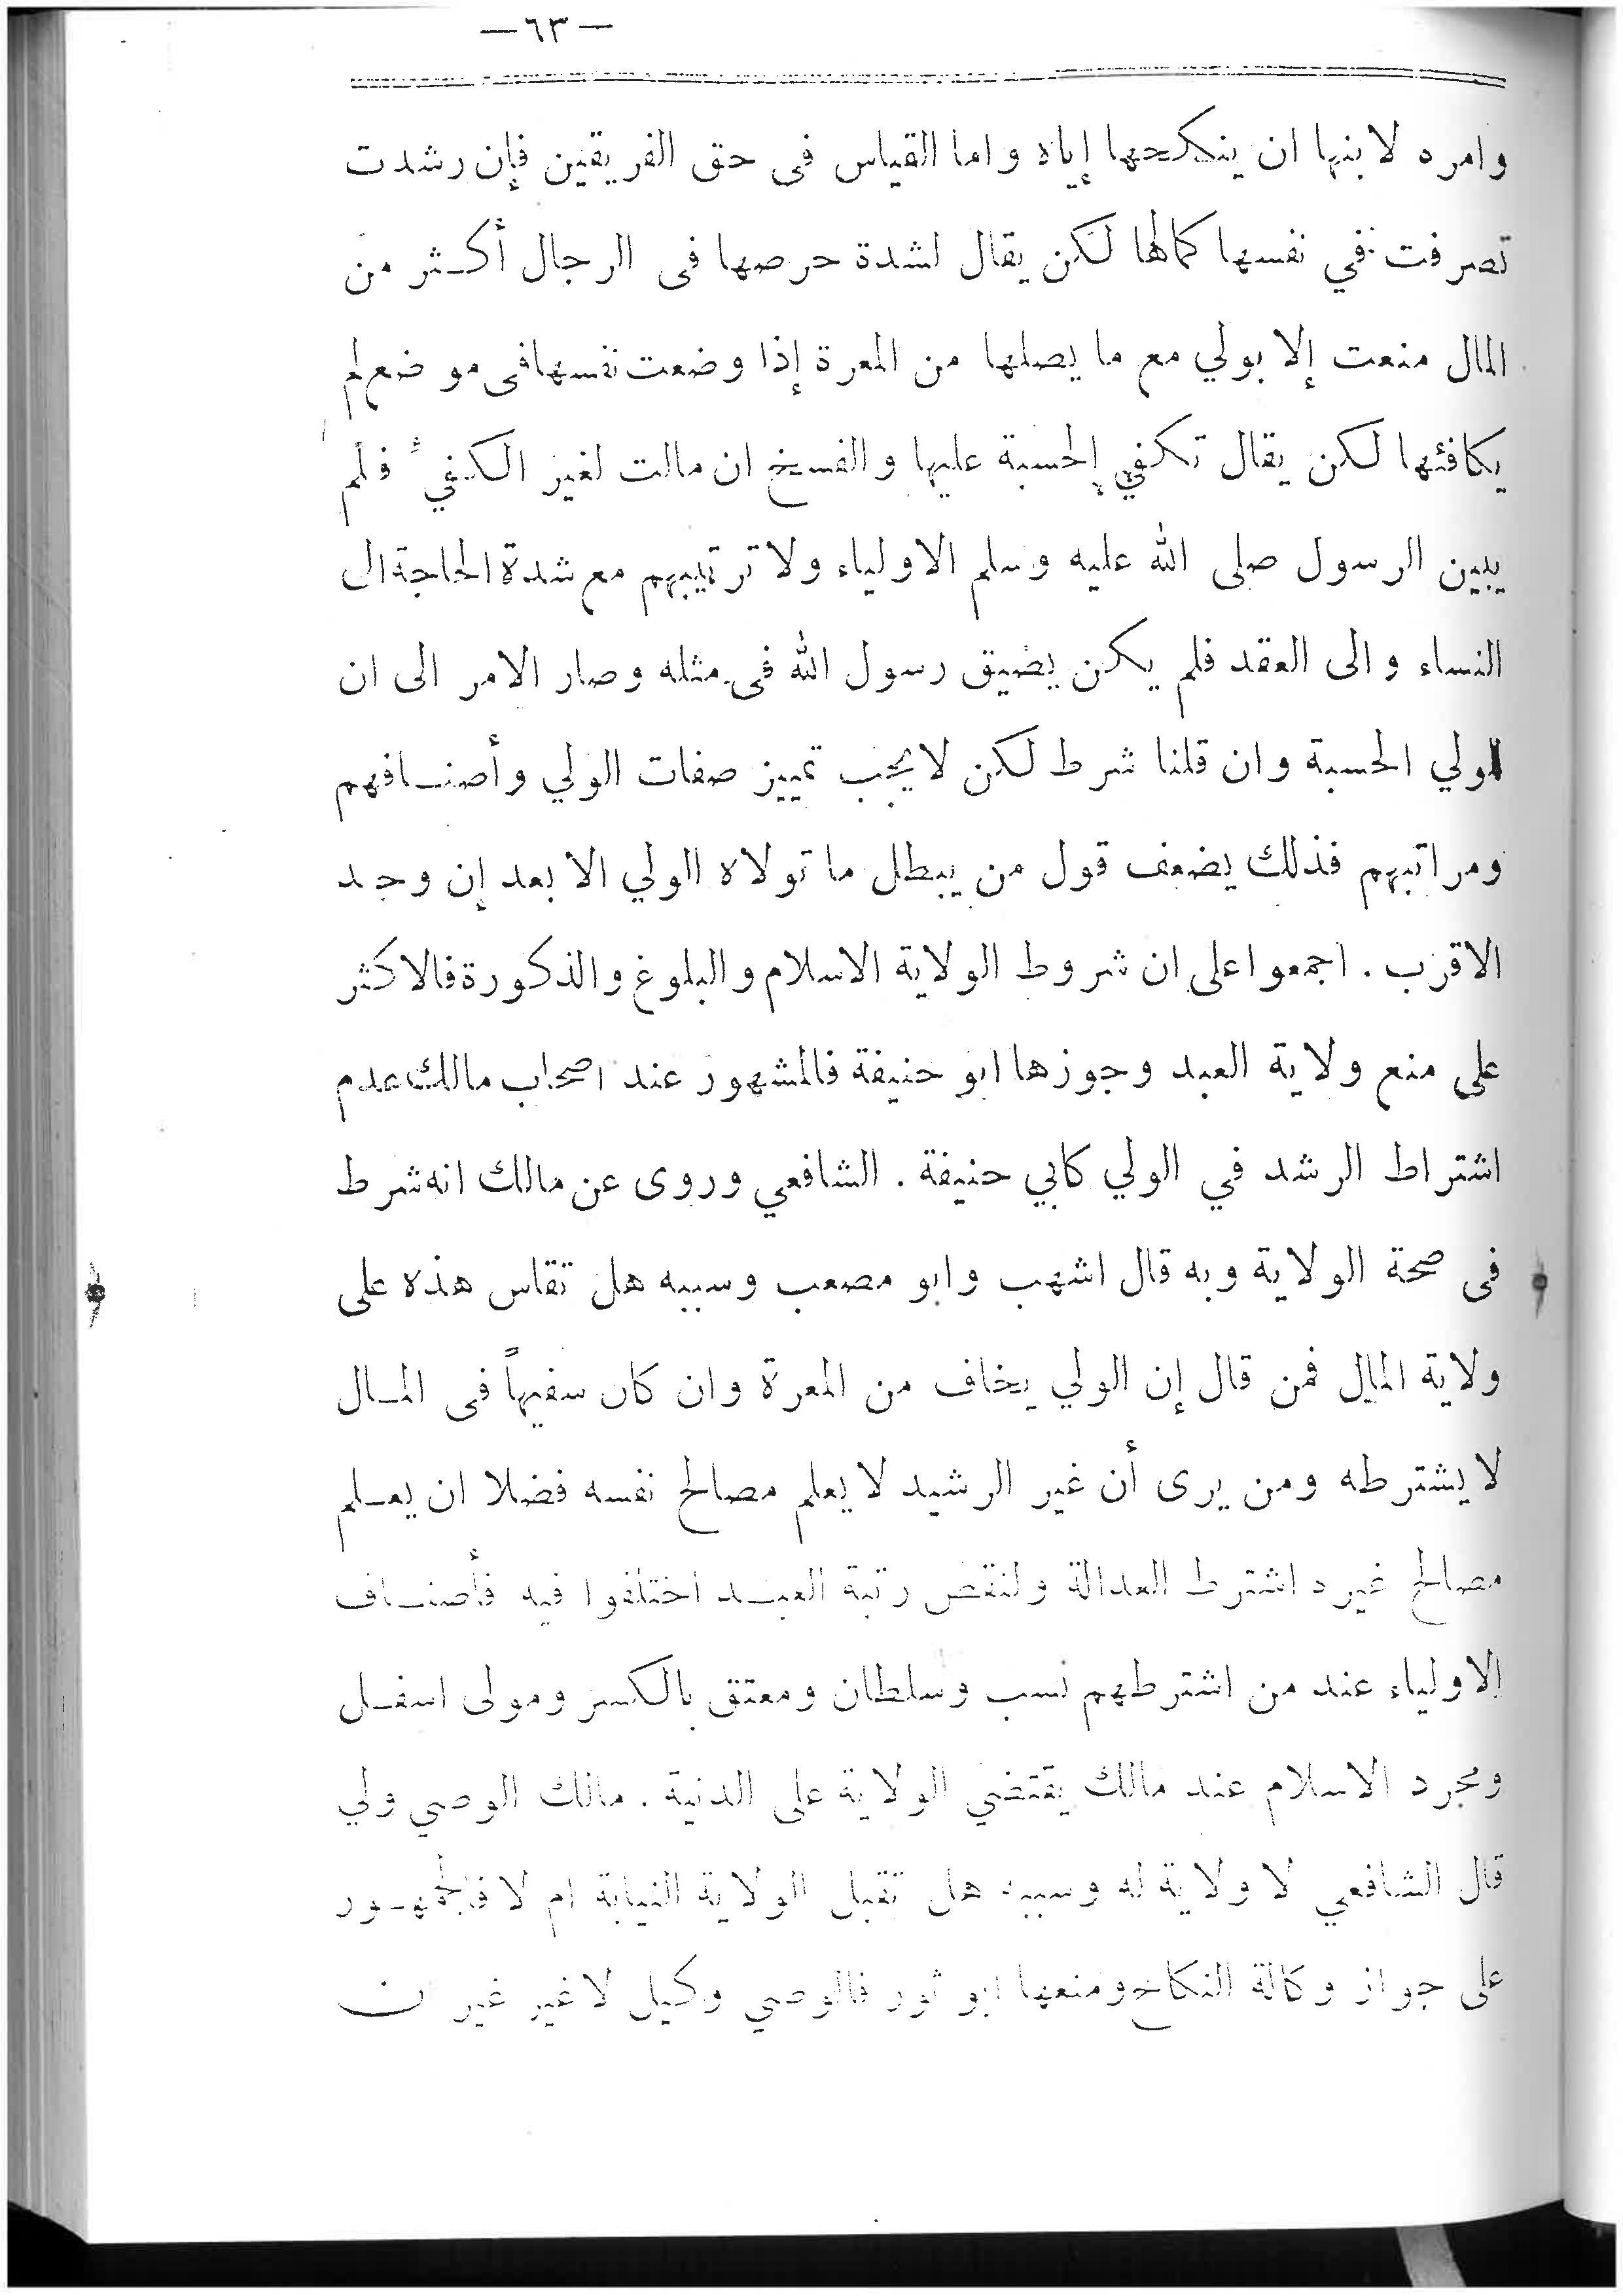 —٦٣—
وامره لابنها ان ينكحها إياه واما القياس فى حق الفريقين فإن رشدت
تصرفت في نفسها كمالها لكن يقال لشدة حرصها فى الرجال أكـثر من
المال منعت إلا بولي مع ما يصلها من المعرة إذا وضعت نفسها فى موضع لم
يكافئها لكن يقال تكفي الحسبة عليها والفسخ ان مالت لغير الكفيء فلم
يبين الرسول صلى الله عليه وسلم الاولياء ولا ترتيبهم مع شدة الحاجة ال
النساء والى العقد فلم يكن يضيق رسول الله فى مثله وصار الامر الى ان
لولي الحسبة وان قلنا شرط لكن لا يجب تمييز صفات الولي وأصنـافهم
ومراتبهم فذلك يضعف قول من يبطل ما تولاه الولي الابعد إن وجد
الاقرب . اجمعوا على ان شروط الولاية الاسلام والبلوغ والذكورة فالاكثر
على منع ولاية العبد وجوزها ابو حنيفة فالمشهور عند اصحاب مالك عدم
اشتراط الرشد في الولي كابي حنيفة . الشافعي وروى عن مالك انه شرط
فى صحة الولاية وبه قال اشهب وابو مصعب وسببه هل تقاس هذه على
ولاية المال فمن قال إن الولي يخاف من المعرة وان كان سفيهاً فى المـال
لا يشترطه ومن يرى أن غير الرشيد لا يعلم مصالح نفسه فضلا ان يعـلم
مصالح غيره اشترط العدالة ولنقص رتبة العبـد اختلفوا فيه فأصنـاف
الاولياء عند من اشترطهم نسب وسلطان ومعتق بالكسر ومولى اسفـل
ومجرد الاسلام عند مالك يقتضي الولاية على الدنية . مالك الوصي ولي
قال الشافعي لا ولاية له وسببه هل تقبل الولاية النيابة ام لا فالجمهـور
على جواز وكالة النكاح ومنعها ابو ثور فالوصي وكيل لا غير غير ان